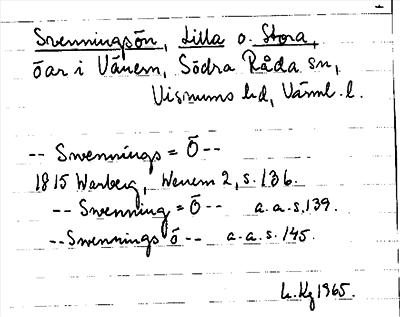 Svenningsön, Lilla o. Stora,
öar i Vänern, Södra Råda sn,
Visnums hd, Värml. l.
-- Swennings = Ö --
1815 Warberg, Wenern 2, s. 136.
-- Swenning = Ö -- a.a.s. 139.
-- Swennings ö -- a.a.s. 145.
L. Kg 1965.